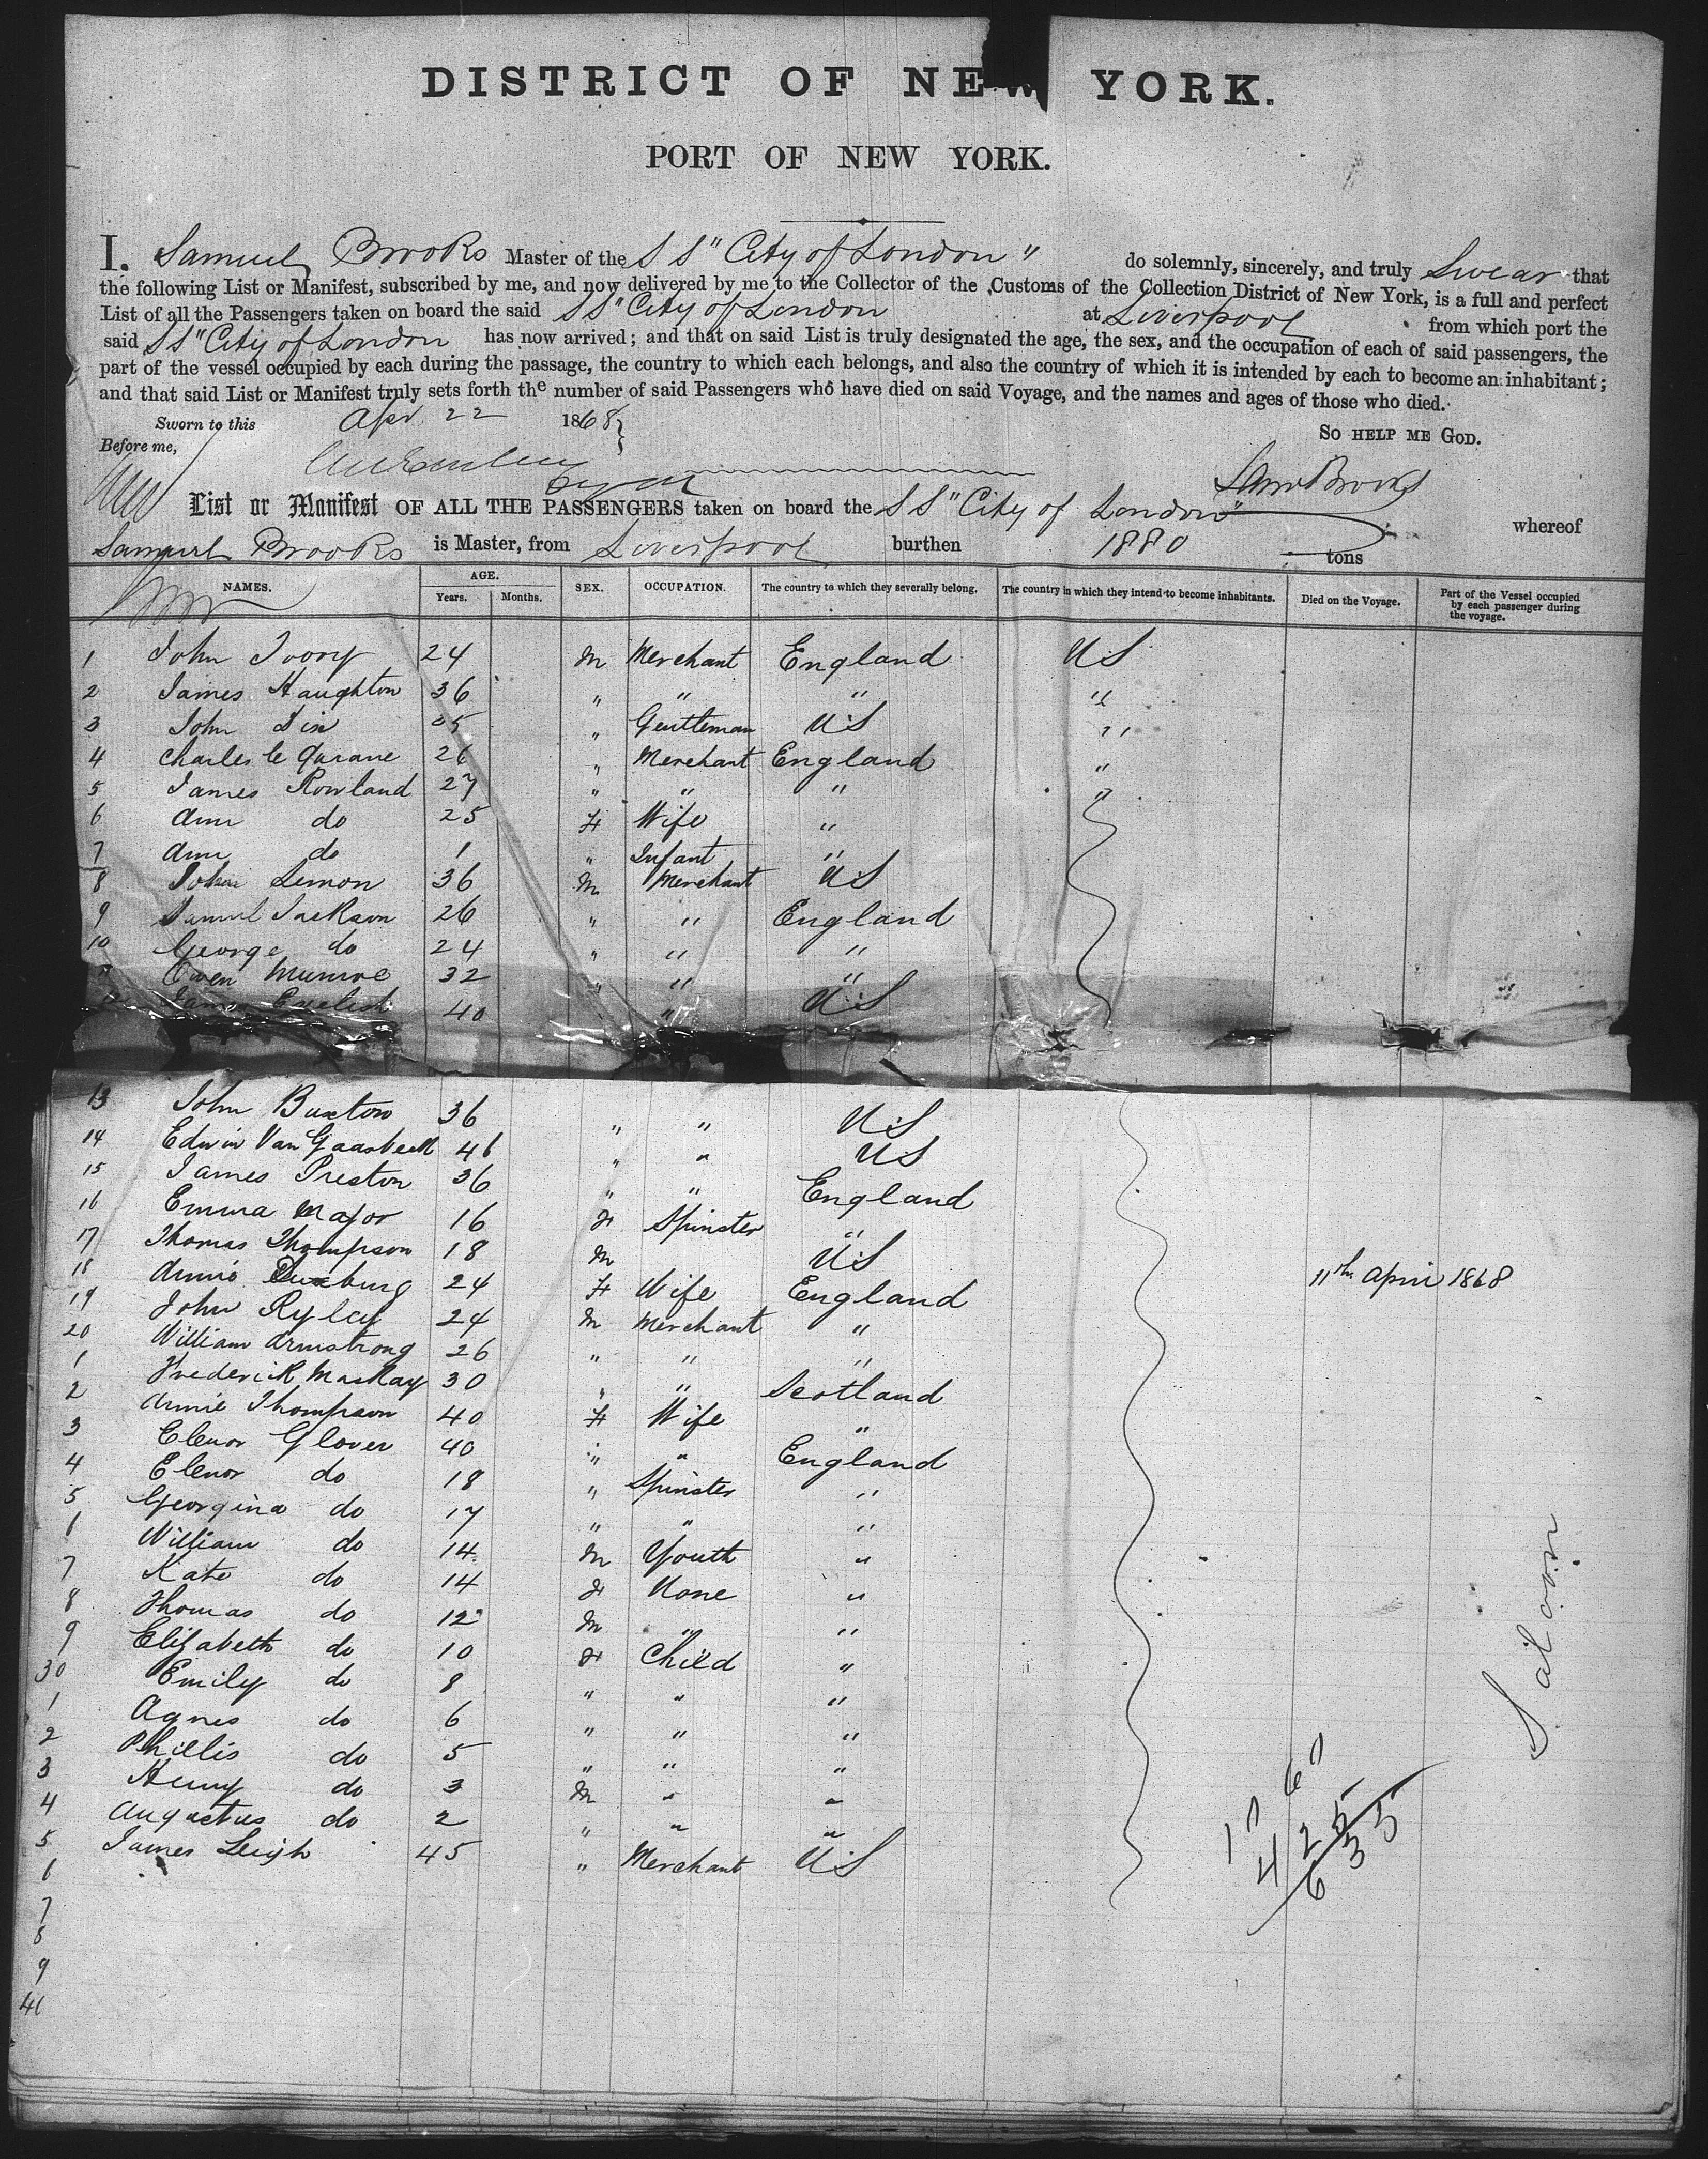 DISTRICT OF NEW YORK.
PORT OF NEW YORK.
I. Samuel Brooks Master of the SS "City of London" do solemnly, sincerely, and truly Swear that
the following List or Manifest, subscribed by me, and now delivered by me to the Collector of the Customs of the Collection District of New York, is a full and perfect
List of all the Passengers taken on board the said SS "City of London at Liverpool from which port the
said SS "City of London has now arrived; and that on said List is truly designated the age, the sex, and the occupation of each of said passengers, the
part of the vessel occupied by each during the passage, the country to which each belongs, and also the country of which it is intended by each to become an inhabitant;
and that said List or Manifest truly sets forth the number of said Passengers who have died on said Voyage, and the names and ages of those who died.
Sworn to this Apr. 22 1868 } SO HELP ME GOD.
Before me,
Saml Brooks
List or Manifest OF ALL THE PASSENGERS taken on board the SS "City of London" whereof
Samuel Brooks is Master, from Liverpool burthen 1880 tons
NAMES. AGE. Years. Months. SEX. OCCUPATION. The country to which they severally belong. The country in which they intend to become inhabitants. Died on the Voyage. Part of the Vessel occupied by each passenger during the voyage.
1 John Ivory 24 M Merchant England US
2 James Haughton 36 " " " "
3 John Dix " Gentleman US "
4 Charles 26 " Merchant England "
5 James Rowland 27 " " " "
6 Ann do 25 F Wife "
7 Ann do 1 " Infant "
8 John Lemon 36 M Merchant US
9 Samuel Jackson 26 " " England
10 George do 24 " " "
Owen Munroe 32 " " "
James English 40 " US
13 John Buxton 36 " " US
14 Edwin Van Gaasbeek 46 " " US
15 James Preston 36 " " England
16 Emma Major 16 F Spinster "
17 Thomas Thompson 18 M US
18 Annie Duxbury 24 F Wife England 11th April 1868
19 John Ryley 24 M Merchant "
20 William Armstrong 26 " " "
1 Frederick MacKay 30 " " Scotland
2 Annie Thompson 40 F Wife "
3 Elenor Glover 40 " " England
4 Elenor do 18 " Spinster "
5 Georgina do 17 " " "
6 William do 14 M Youth "
7 Kate do 14 F None "
8 Thomas do 12 M " "
9 Elizabeth do 10 F Child "
30 Emily do 8 " " "
1 Agnes do 6 " " "
2 Phillis do 5 " " "
3 Henry do 3 M " "
4 Augustus do 2 " " "
5 James Leigh 45 " Merchant US
6
7
8
9
40
Saloon